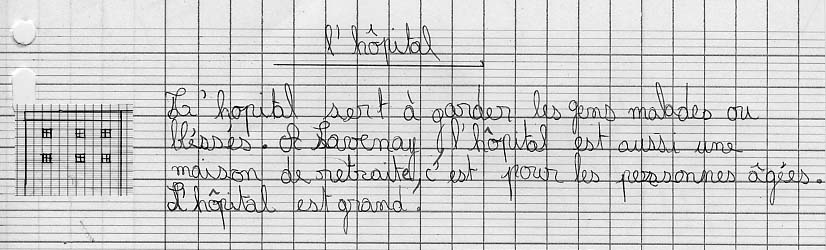 l'hôpital
La'hopital sert à garder les gens malades ou
bléssés. A Savenay l'hôpital est aussi une
maison de retraite, c'est pour les personnes âgées.
L'hôpital est grand.